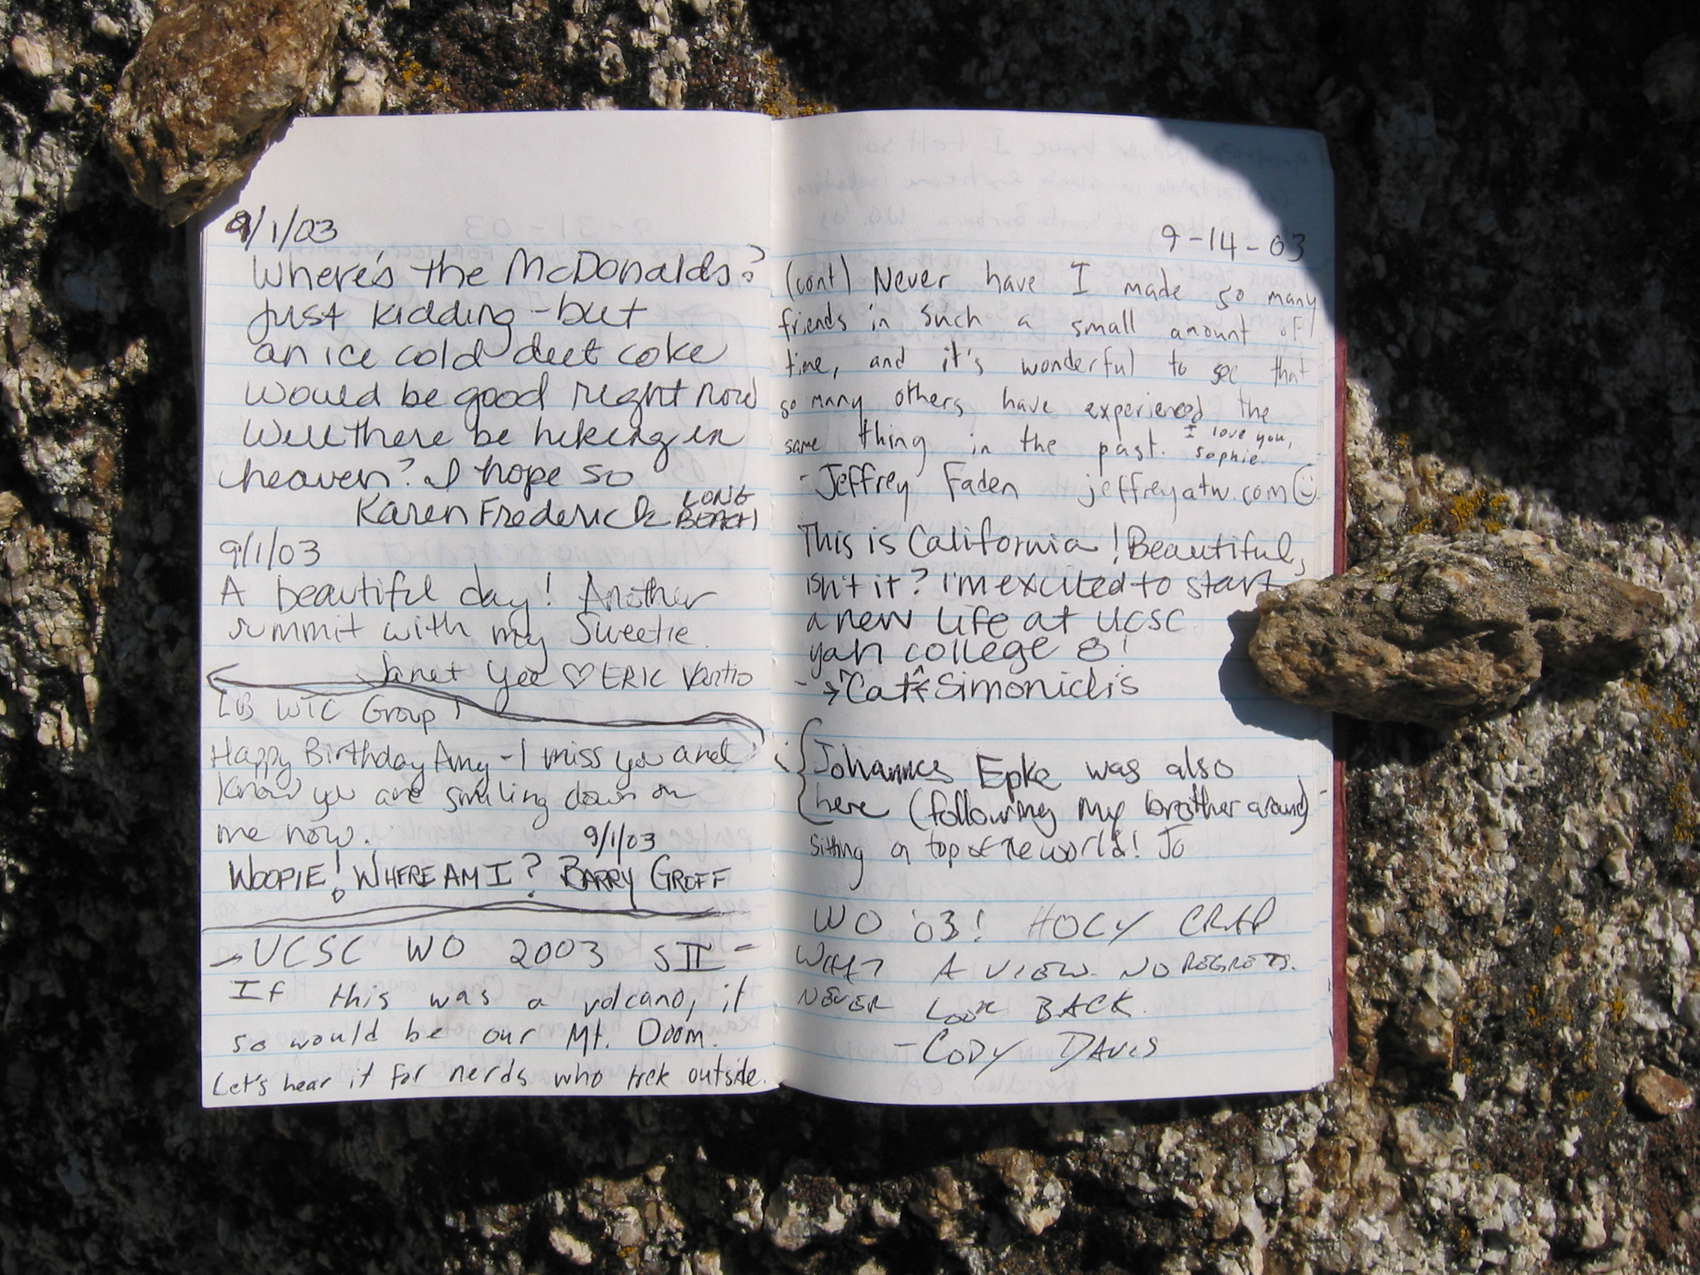 9/1/03
Where's the McDonalds?
Just kidding - but
an ice cold diet coke
would be good right now
Will there be hiking in
heaven? I hope so
Karen Frederick LONG BEACH
9/1/03
A beautiful day! Another
summit with my Sweetie.
Janet Yee ♡ ERIC
LB WTC Group!
Happy Birthday Amy - I miss you and
know you are smiling down on
me now.
9/1/03
WOOPIE! WHERE AM I? BARRY GROFF
UCSC WO 2003 SII -
If this was a volcano, it
so would be our Mt. Doom.
Let's hear it for nerds who trek outside.
9-14-03
(cont) Never have I made so many
friends in such a small amount of
time, and it's wonderful to see that
so many others have experienced the
same thing in the past. I love you, Sophie.
- Jeffrey Faden jeffreyatw.com ☺
This is California! Beautiful,
isn't it? I'm excited to start
a new life at UCSC
yah college 8!
- Cat Simonidis
Johannes Epke was also
here (following my brother around)
sitting on top of the world! Jo
WO '03! HOLY CRAP
WHAT A VIEW. NO REGRETS.
NEVER LOOK BACK.
- CODY DAVIS